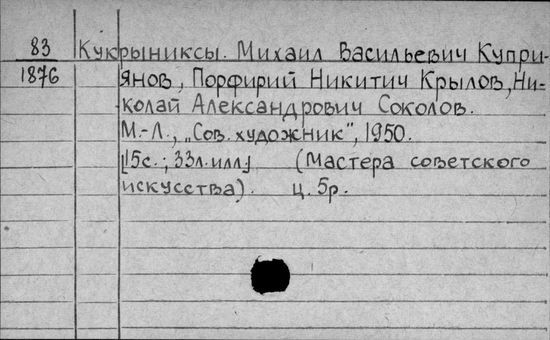 83 Кукрыниксы. Михаил Васильевич Купри-
1876 янов, Порфирий Никитич Крылов, Ни-
колай Александрович Соколов.
М.-Л., „Сов. художник", 1950.
[15с.; 33л.илл.] (Мастера советского
искусства). ц. 5р.